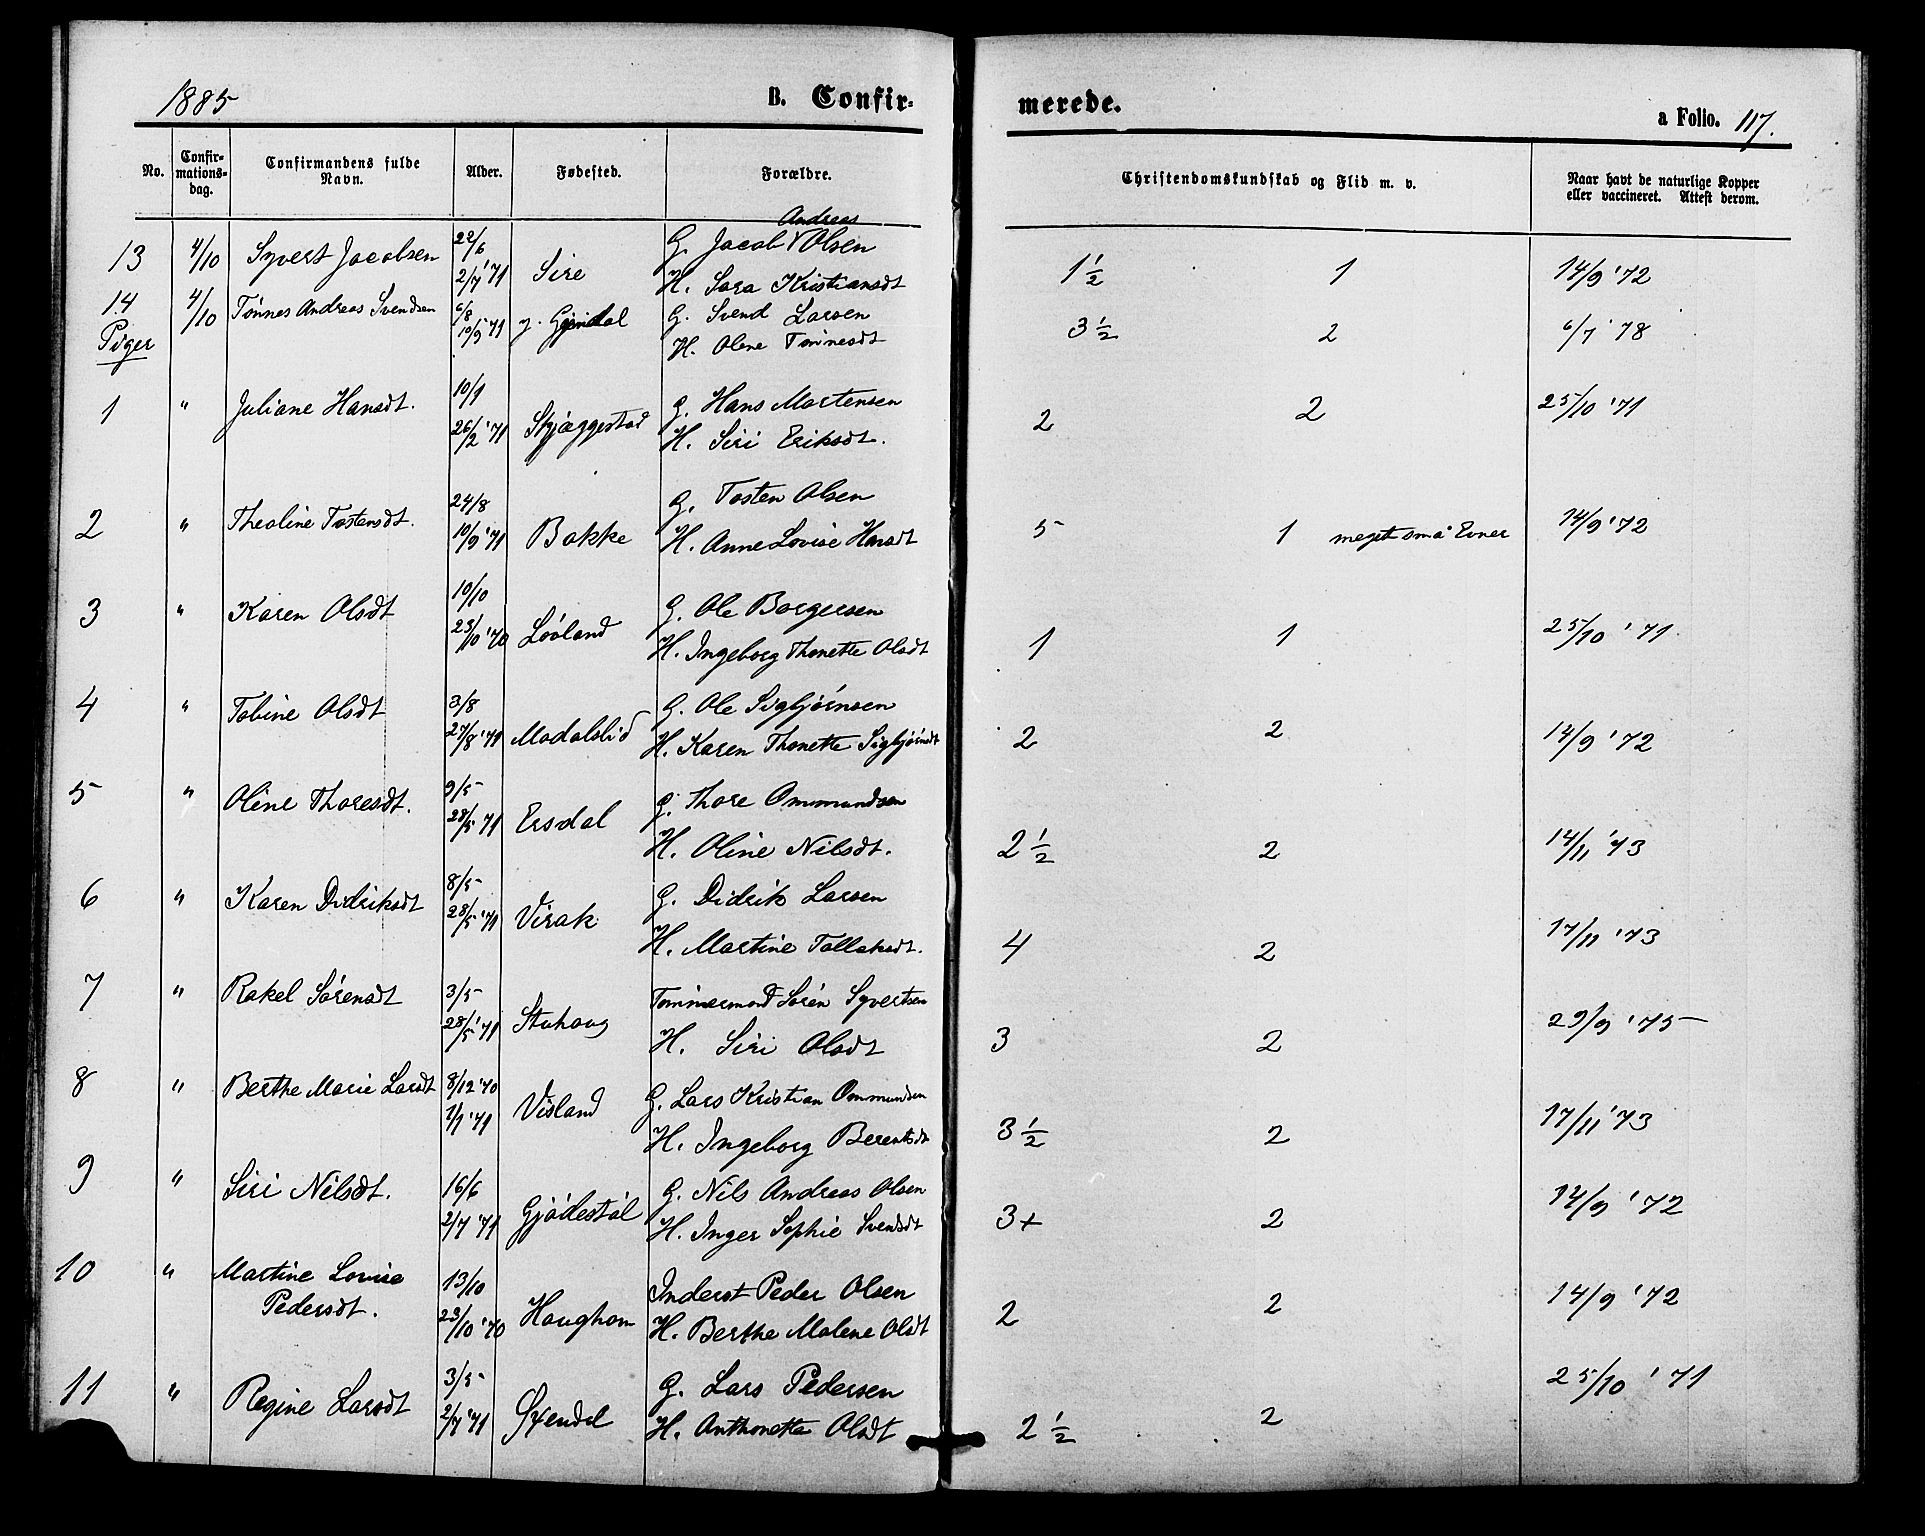 1885 B. Confir- merede. a Folio. 117.
No. Confir-mations-dag. Confirmandens fulde Navn. Alder. Fødested. Forældre. Christendomskundskab og Flid m. v. Naar havt de naturlige Kopper eller vaccineret. Attest derom.
Andreas
13 4/10 Syvert Jacobsen 22/6 G. Jacob V Olsen
2/7 '71 Sire H. Sara Kristiansdt 1 1/2 1 14/9 '72
14 4/10 Tønnes Andreas Svendsen 6/8 G. Svend Larsen
10/9 '71 H. Olene Tønnesdt 3 1/2 2 6/7 '78
Piger
1 " Juliane Hansdt. 10/1 G. Hans Martensen
26/2 '71 Skjæggestad H. Siri Eriksdt. 2 2 25/10 '71
2 " Theoline Tostensdt. 24/8 G. Tosten Olsen
10/9 '71 Bakke H. Anne Lovise Hansdt 5 1 meget små Evner 14/9 '72
3 " Karen Olsdt 10/10 G. Ole Borgersen
23/10 '70 Løvland H. Ingeborg Thonette Olsdt 1 1 25/10 '71.
4 " Tobine Olsdt 3/8 G. Ole Sigbjørnsen
27/8 '71 Modalsli d H. Karen Thonette Sigbjørnsdt 2 2 14/9 '72
5 " Oline Thoresdt. 9/5 G. Thore Ommundsen
28/5 '71 Ersdal H. Oline Nilsdt. 2 1/2 2 14/11 '73
6 " Karen Didriksdt 8/5 G. Didrik Larsen
28/5 '71 Virak H. Martine Tollaksdt. 4 2 17/11 '73
7 " Rakel Sørensdt 3/5 Tømmermand Sørén Syvertsen
28/5 '71 Stuhaug H. Siri Olsdt 3 2 29/9 '75
8 " Berthe Marie Larsdt 8/12 '70 G. Lars Kristian Ommundsen
1/1 '71 Visland H. Ingeborg Berentsdt 3 1/2 2 17/11 '73
9 " Siri Nilsdt. 16/6 G. Nils Andreas Olsen
2/7 '71 Gjødestøl H. Inger Sophie Svendsdt 3+ 2 14/9 '72
10 " Martine Lovise 13/10 Inderst Peder Olsen
Pedersdt. 23/10 '70 Haughom H. Berthe Malene Olsdt 2 2 14/9 '72
11 " Regine Larsdt 3/5 G. Lars Pedersen
2/7 '71 Øxendal H. Anthonette Olsdt 2 1/2 2 25/10 '71